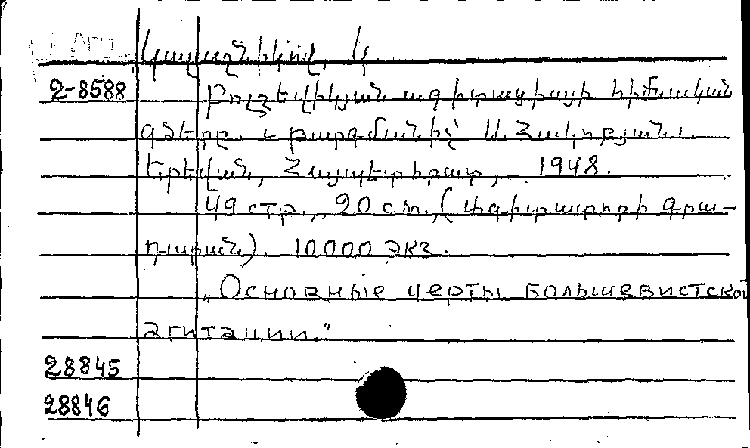 Կալաշնիկով, Կ.
2-8588 Բոլշևիկյան ագիտացիայի հիմնական
գծերը. Թարգմանիչ Ա. Հակոբյան.
Երևան, Հայպետհրատ, 1948.
49 стр., 20 см., (Ագիտատորի գրա-
դարան). 10000 экз.
„Основные черты большевистской
агитации."
28845
28846